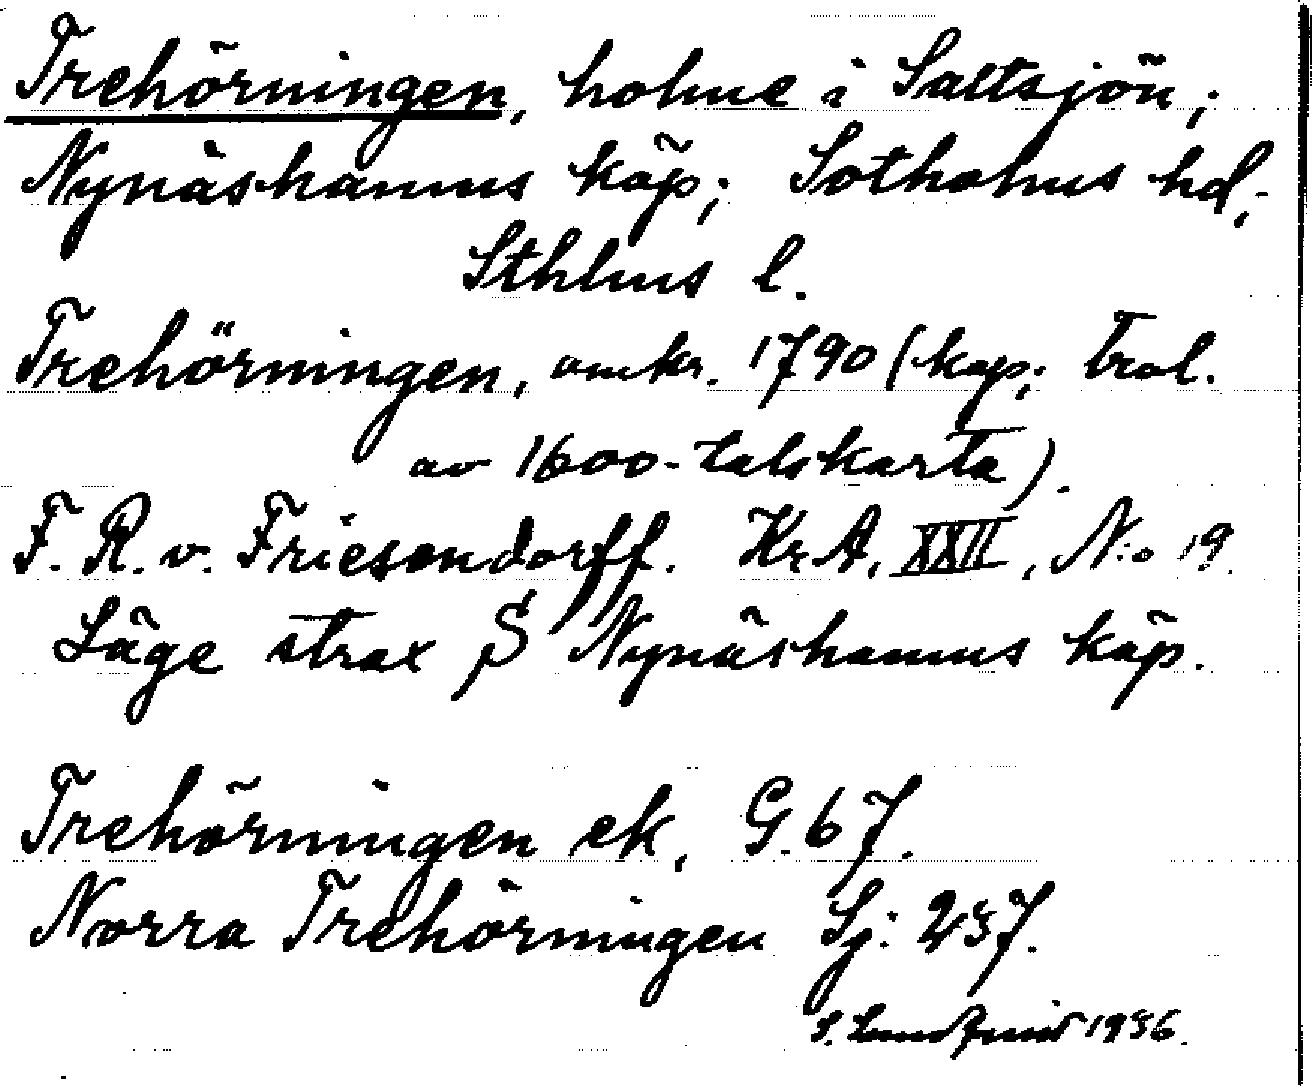 Trehörningen, holme i Saltsjön;
Nynäshamns köp; Sotholms hd,
Sthlms l.
Trehörningen, omkr. 1790 (kop; trol.
av 1600-talskarta).
F. R. v. Friesendorff. Kr. A, XXII, N:o 19.
Läge strax S Nynäshamns köp.
Trehörningen ek, G. 67.
Norra Trehörningen Sj: 257.
S. Lundqvist 1956.